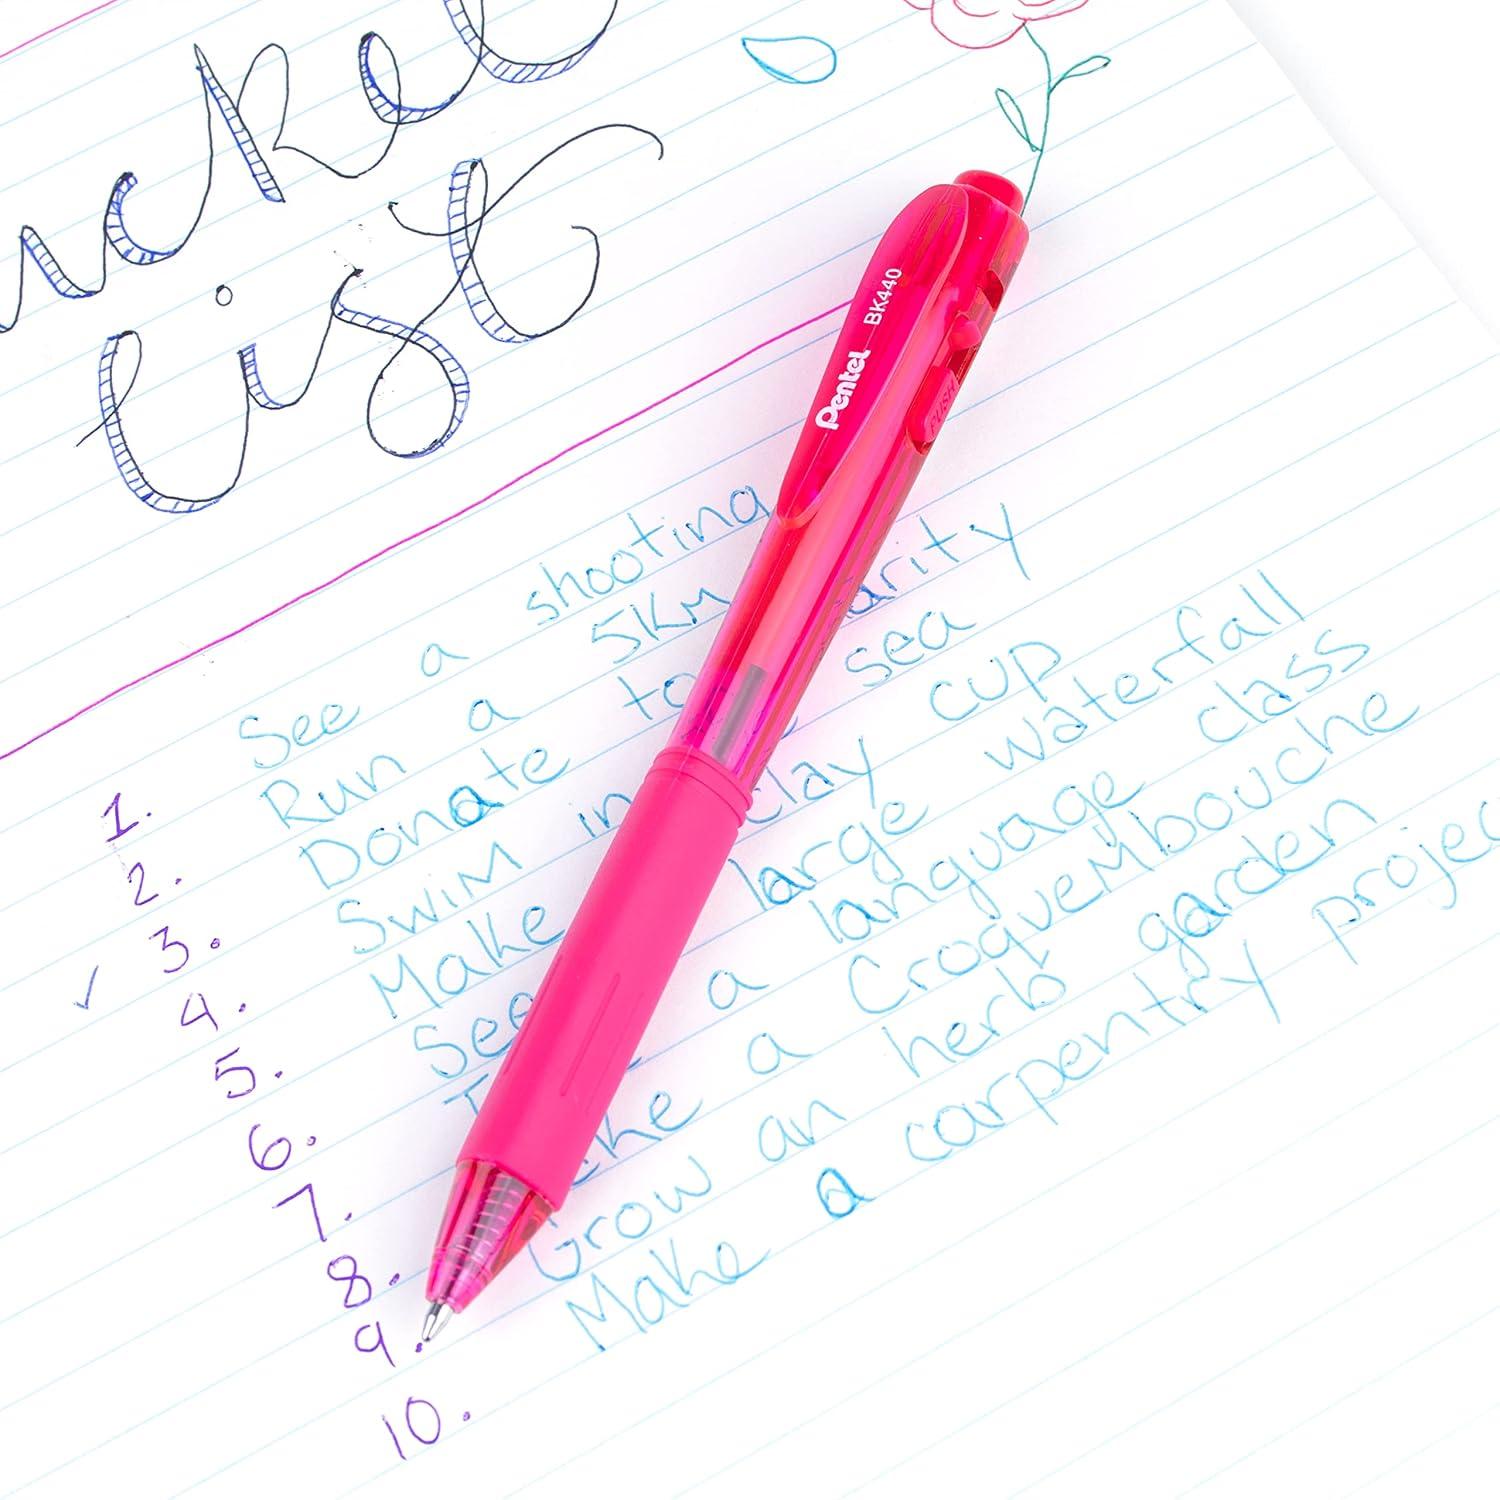 ucket
List
Pentel BK440
PUSH
1. See a shooting
2. Run a 5KM
3. Donate to arity
4. Swim in sea
5. Make clay cup
6. See large waterfall
7. a language class
8. a Croquembouche
9. Grow an herb garden
10. Make a carpentry projec